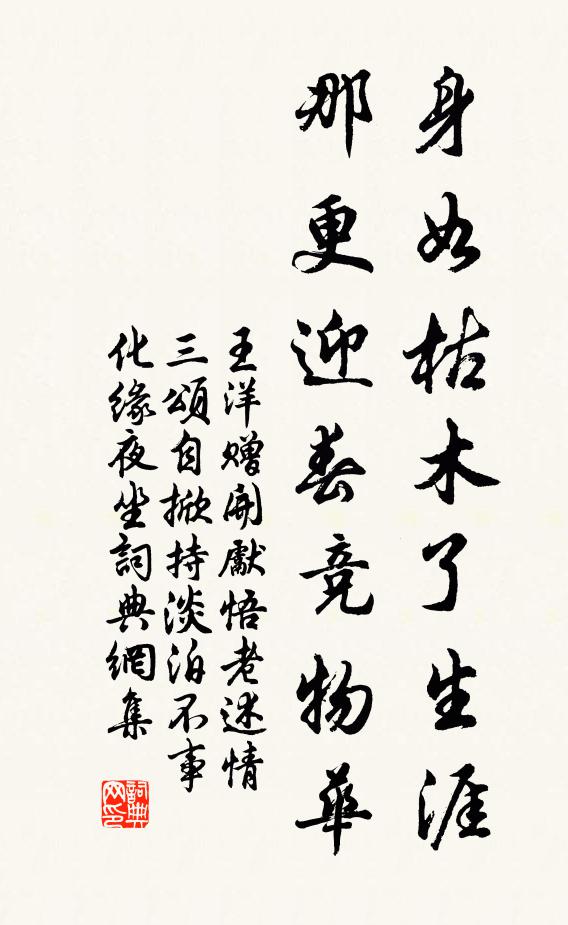 身如枯木了生涯
那更迎春竞物華
王洋贈開獻悟老述情
三頌自掀持淡泊不事
化緣夜坐詞典網集
詞典
网印